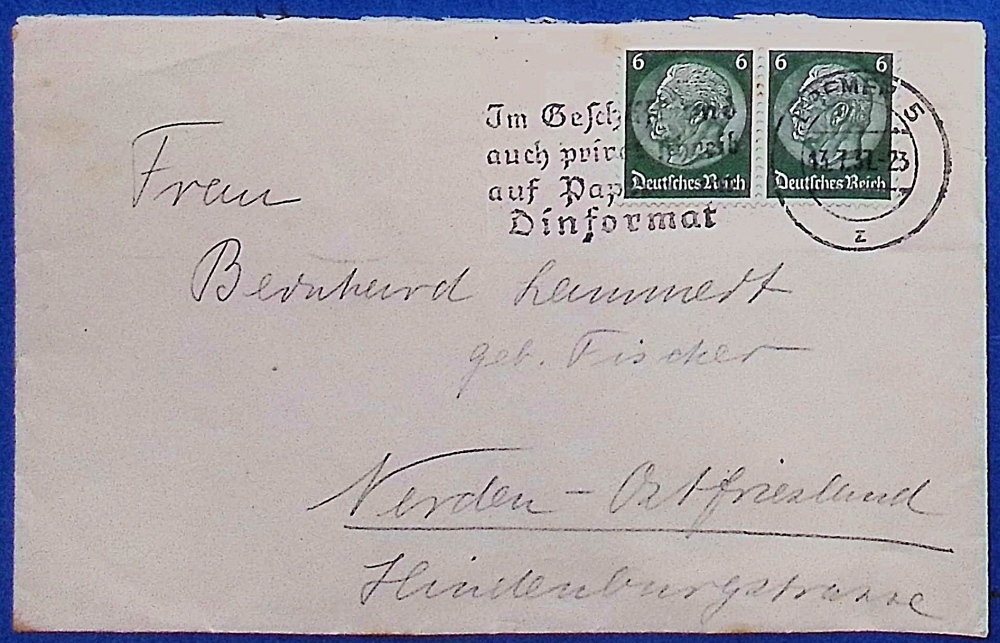 6 6 6 6
Deutsches Reich Deutsches Reich
BREMEN 5
13.7.37.-23
z
Im Gesch
auch priv
auf Pap
Dinformat
Frau
Bernhard Lammert
geb. Fischer
Norden - Ostfriesland
Hindenburgstrasse